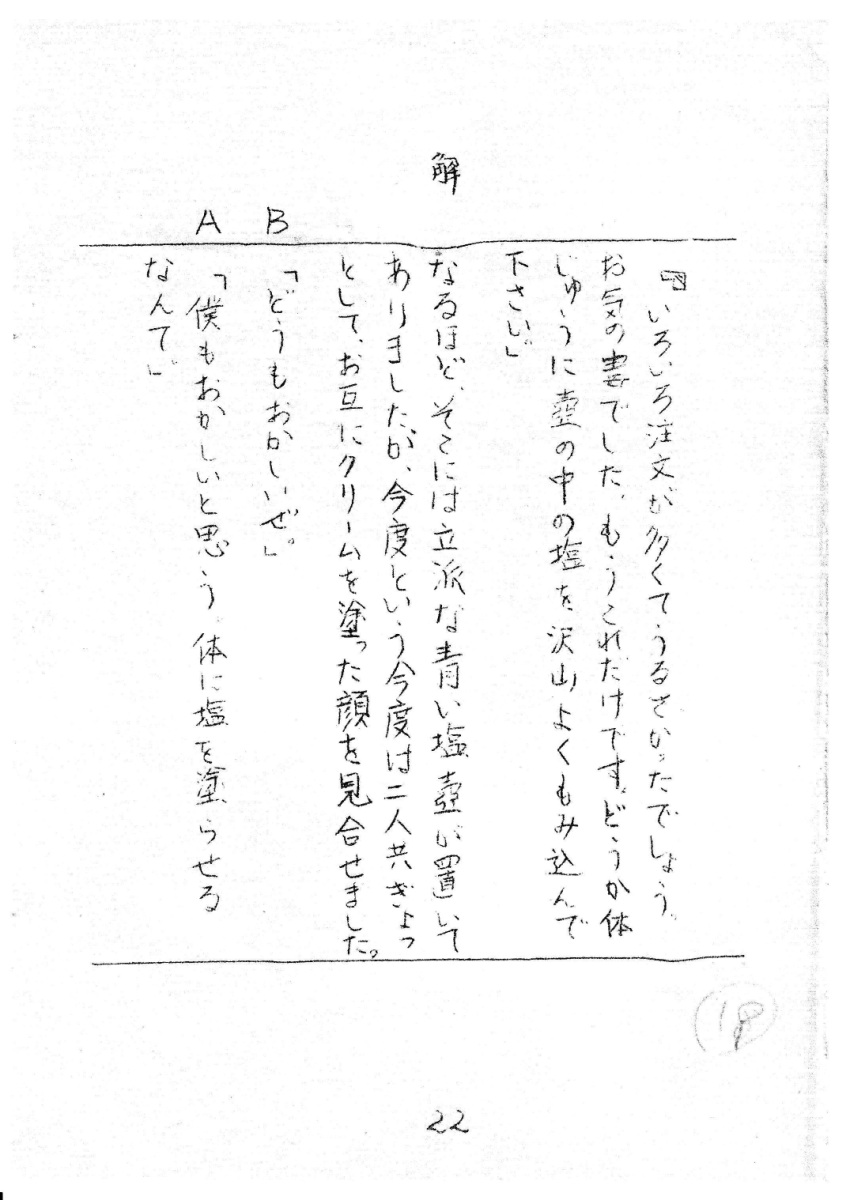 『いろいろ注文が多くてうるさかったでしょう。
お気の毒でした。もうこれだけです。どうか体
じゅうに壺の中の塩を沢山よくもみ込んで
下さい。」
解
なるほど、そこには立派な青い塩壺が置いて
ありましたが、今度という今度は二人共ぎょっ
として、お互にクリームを塗った顔を見合せました。
B
「どうもおかしいぜ。」
A
「僕もおかしいと思う。体に塩を塗らせる
なんて」
18
22